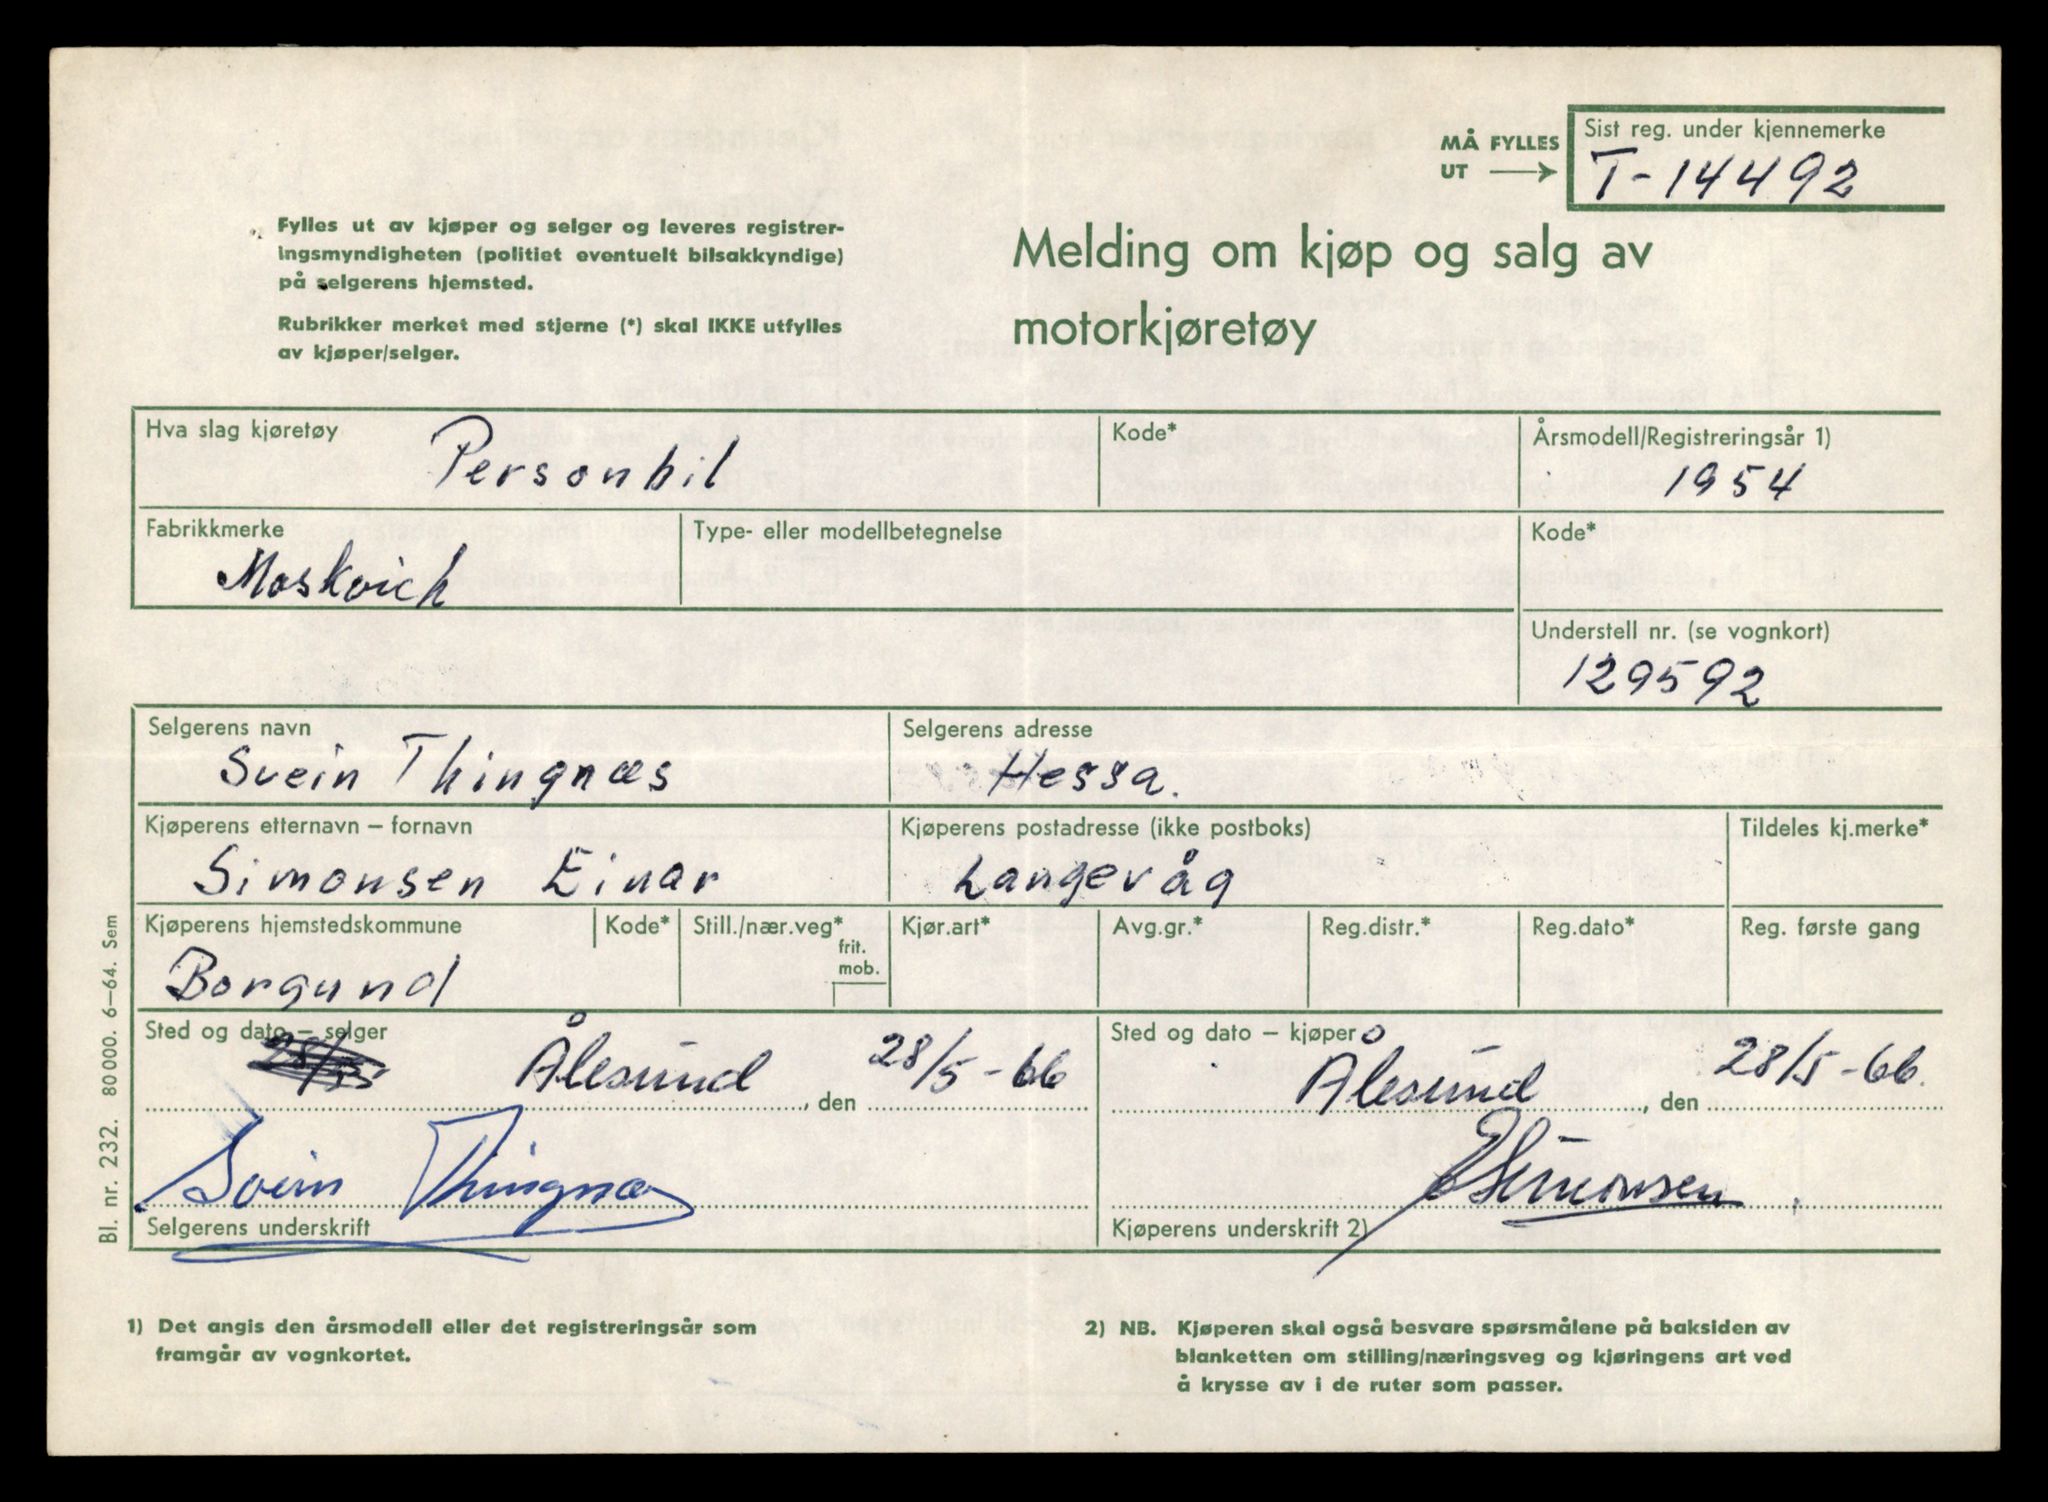 MÅ FYLLES UT
Sist reg. under kjennemerke
T-14492
Fylles ut av kjøper og selger og leveres registrer-
ingsmyndigheten (politiet eventuelt bilsakkyndige)
på selgerens hjemsted.
Rubrikker merket med stjerne (*) skal IKKE utfylles
av kjøper/selger.
Melding om kjøp og salg av
motorkjøretøy
Hva slag kjøretøy
Personbil
Kode*
Årsmodell/Registreringsår 1)
1954
Fabrikkmerke
Moskvich
Type- eller modellbetegnelse
Kode*
Understell nr. (se vognkort)
129592
Selgerens navn
Svein Thingnæs
Selgerens adresse
Hessa.
Kjøperens etternavn – fornavn
Simonsen Einar
Kjøperens postadresse (ikke postboks)
Langevåg
Tildeles kj.merke*
Kjøperens hjemstedskommune
Borgund
Kode*
Still./nær.veg*
frit.
mob.
Kjør.art*
Avg.gr.*
Reg.distr.*
Reg.dato*
Reg. første gang
Sted og dato – selger
28/5
Ålesund, den 28/5-66
Svein Thingnæs
Selgerens underskrift
Sted og dato – kjøper
Ålesund, den 28/5-66.
ESimonsen
Kjøperens underskrift 2)
Bl. nr. 232. 80 000. 6–64. Sem
1) Det angis den årsmodell eller det registreringsår som
framgår av vognkortet.
2) NB. Kjøperen skal også besvare spørsmålene på baksiden av
blanketten om stilling/næringsveg og kjøringens art ved
å krysse av i de ruter som passer.